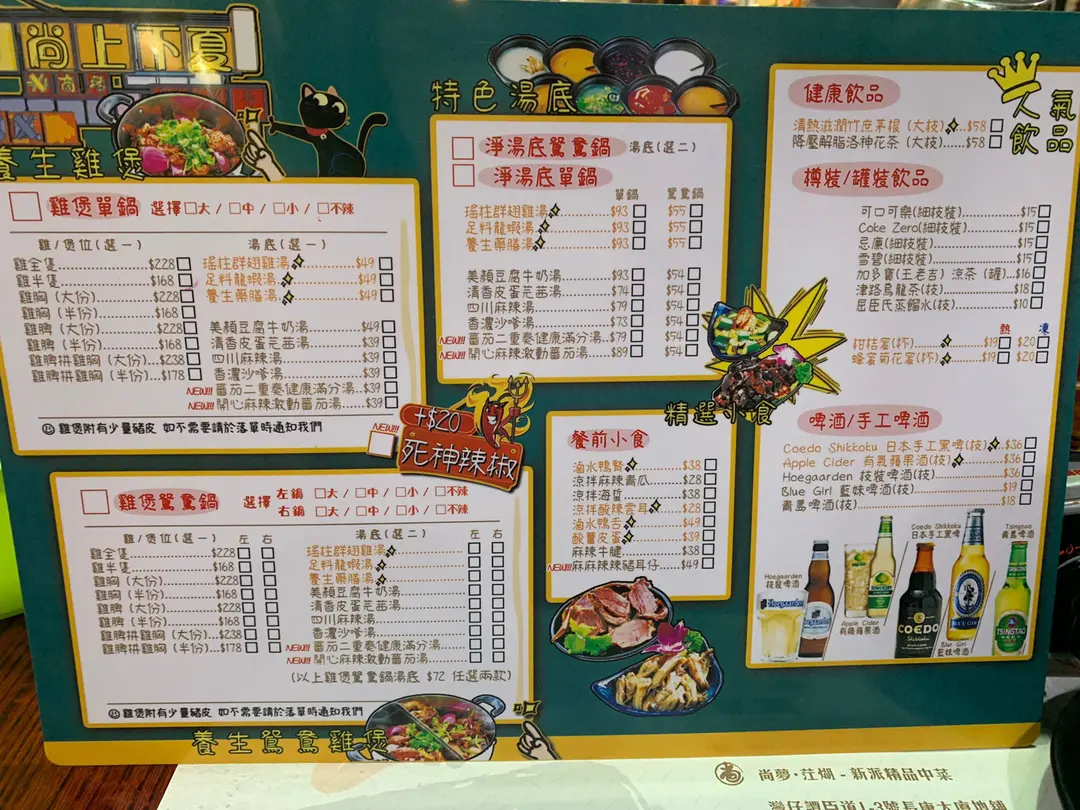 尚上不夏
養生雞煲
雞煲單鍋 選擇 □大 / □中 / □小 / □不辣
雞/煲位(選一)
雞全隻 $228
雞半隻 $168
雞胸 (大份) $228
雞胸 (半份) $168
雞髀 (大份) $228
雞髀 (半份) $168
雞髀拼雞胸 (大份) $238
雞髀拼雞胸 (半份) $178
湯底(選一)
瑤柱群翅雞湯 $49
足料龍蝦湯 $49
養生藥膳湯 $49
美顏豆腐牛奶湯 $49
清香皮蛋芫茜湯 $39
四川麻辣湯 $39
香濃沙嗲湯 $39
NEW!!! 番茄二重奏健康滿分湯 $39
NEW!!! 開心麻辣激動番茄湯 $39
雞煲附有少量豬皮 如不需要請於落單時通知我們
NEW!!!
+$20
死神辣椒
雞煲鴛鴦鍋 選擇
左鍋 □大 / □中 / □小 / □不辣
右鍋 □大 / □中 / □小 / □不辣
雞/煲位(選一) 左 右
雞全隻 $228
雞半隻 $168
雞胸 (大份) $228
雞胸 (半份) $168
雞髀 (大份) $228
雞髀 (半份) $168
雞髀拼雞胸 (大份) $238
雞髀拼雞胸 (半份) $178
湯底(選二) 左 右
瑤柱群翅雞湯
足料龍蝦湯
養生藥膳湯
美顏豆腐牛奶湯
清香皮蛋芫茜湯
四川麻辣湯
香濃沙嗲湯
NEW!!! 番茄二重奏健康滿分湯
NEW!!! 開心麻辣激動番茄湯
(以上雞煲鴛鴦鍋湯底 $72 任選兩款)
雞煲附有少量豬皮 如不需要請於落單時通知我們
養生鴛鴦雞煲
特色湯底
淨湯底鴛鴦鍋 湯底(選二)
淨湯底單鍋
單鍋 鴛鴦鍋
瑤柱群翅雞湯 $93 $55
足料龍蝦湯 $93 $55
養生藥膳湯 $93 $55
美顏豆腐牛奶湯 $93 $54
清香皮蛋芫茜湯 $74 $54
四川麻辣湯 $79 $54
香濃沙嗲湯 $73 $54
NEW!!! 番茄二重奏健康滿分湯 $79 $54
NEW!!! 開心麻辣激動番茄湯 $89 $54
精選小食
餐前小食
滷水鴨腎 $38
涼拌麻辣青瓜 $28
涼拌海蜇 $38
涼拌酸辣雲耳 $28
滷水鴨舌 $49
酸薑皮蛋 $39
麻辣牛腱 $38
NEW!!! 麻麻辣辣豬耳仔 $49
人氣飲品
健康飲品
清熱滋潤竹蔗茅根 (大枝) $58
降壓解脂洛神花茶 (大枝) $58
樽裝/罐裝飲品
可口可樂(細枝裝) $15
Coke Zero(細枝裝) $15
忌廉(細枝裝) $15
雪碧(細枝裝) $15
加多寶(王老吉) 涼茶 (罐) $16
津路烏龍茶(枝) $18
屈臣氏蒸餾水(枝) $10
熱 凍
柑桔蜜(杯) $19 $20
蜂蜜菊花蜜(杯) $19 $20
啤酒/手工啤酒
Coedo Shikkoku 日本手工黑啤(枝) $36
Apple Cider 有氣蘋果酒(枝) $36
Hoegaarden 枝裝啤酒(枝) $36
Blue Girl 藍妹啤酒(枝) $19
青島啤酒(枝) $18
Hoegaarden
枝裝啤酒
Apple Cider
有機蘋果酒
Coedo Shikkoku
日本手工黑啤
Blue Girl
藍妹啤酒
Tsingtao
青島啤酒
Hoegaarden
COEDO
Shikkoku
BLUE GIRL
TSINGTAO
尚夢·茳煳 - 新派精品中菜
灣仔譚臣道1-3號長康大廈地舖